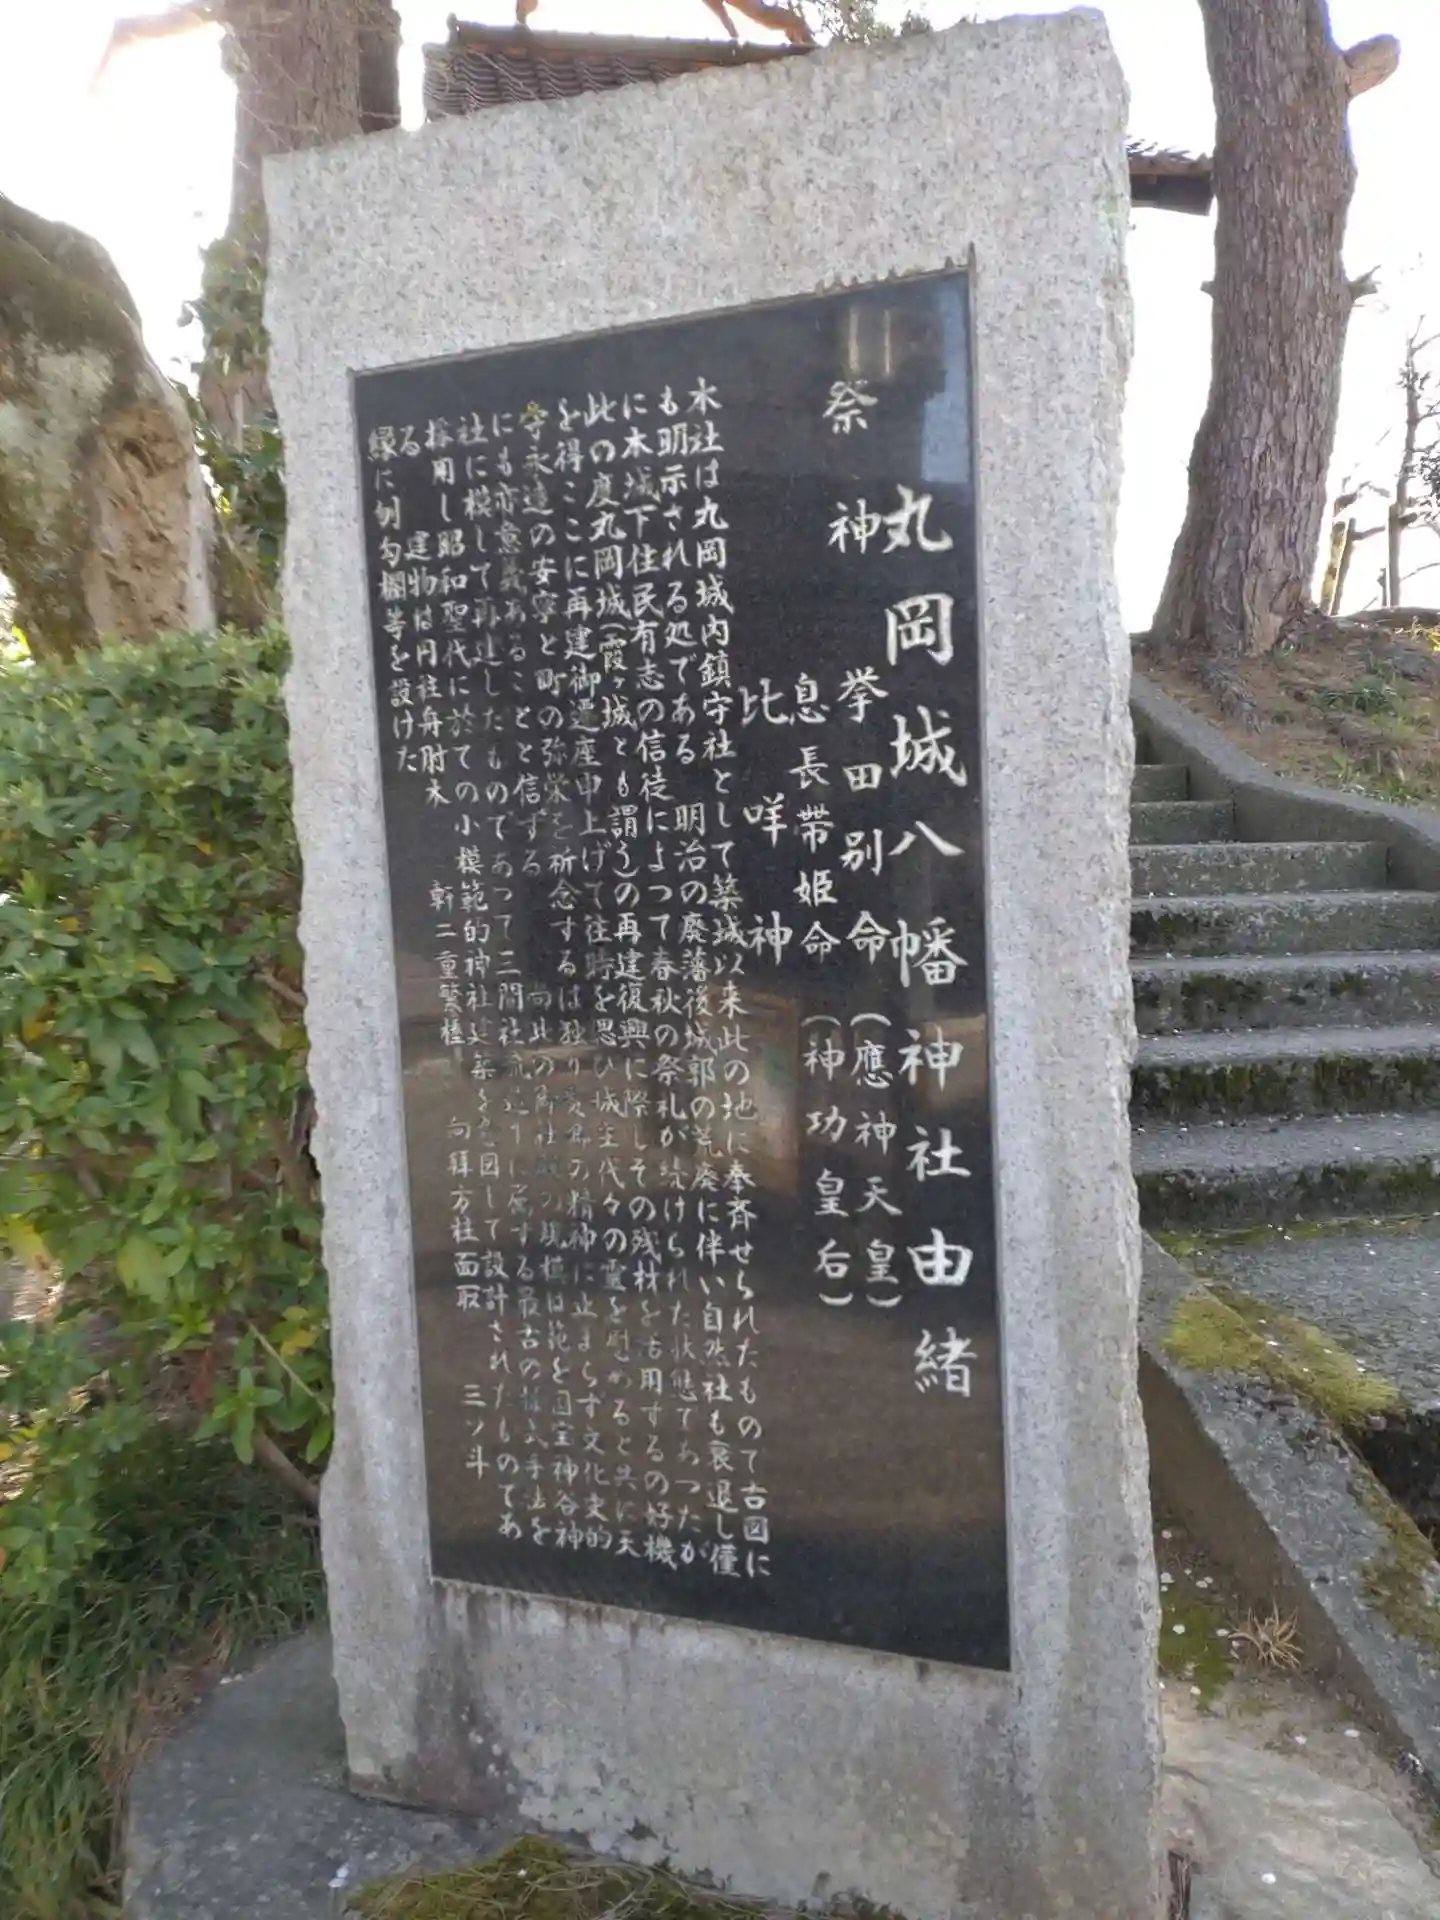 丸岡城八幡神社由緒
祭神 挙田別命(應神天皇)
息長帯姫命(神功皇后)
比咩神
本社は丸岡城内鎮守社として築城以来此の地に奉斉せられたもので古図に
も明示される処である 明治の廃藩後城郭の荒廃に伴い自然社も衰退し僅
に本城下住民有志の信徒によつて春秋の祭礼が続けられた状態であつたが
此の度丸岡城(霞ヶ城とも謂う)の再建復興に際しその残材を活用するの好機
を得ここに再建御遷座申上げて往時を思ひ城主代々の霊を慰めると共に天
守永遠の安寧と町の弥栄を祈念するは独り愛郷の精神に止まらず文化史的
にも亦意義あることと信ずる 尚此の御社殿の規模は範を国宝神谷神
社に模して再建したものであつて三間社流造りに属する最古の様式手法を
採用し昭和聖代に於ての小模範的神社建築を企図して設計されたものであ
る 建物は円柱舟肘木 軒二重繁棰 向拝方柱面取 三ツ斗
縁に刎勾欄等を設けた